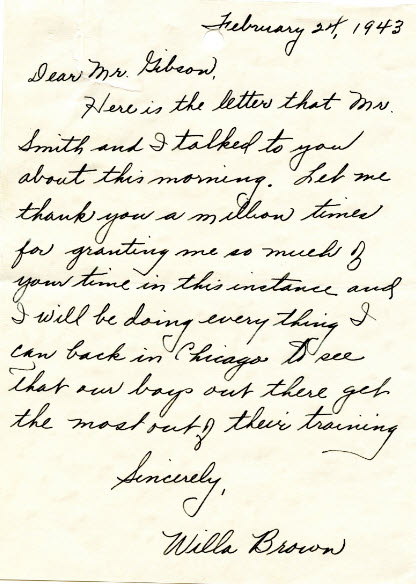 February 24, 1943
Dear Mr. Gibson,
Here is the letter that Mr.
Smith and I talked to you
about this morning. Let me
thank you a million times
for granting me so much of
your time in this instance and
I will be doing everything I
can back in Chicago to see
that our boys out there get
the most out of their training
Sincerely,
Willa Brown